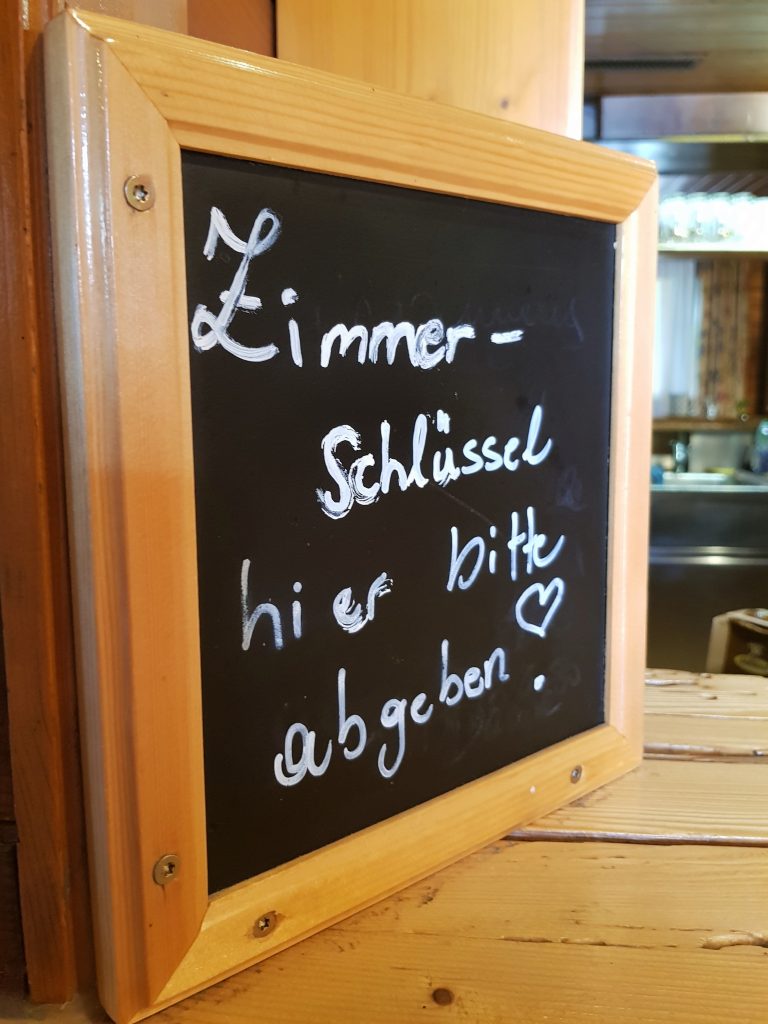 Zimmer-
Schlüssel
hier bitte
abgeben ♡.